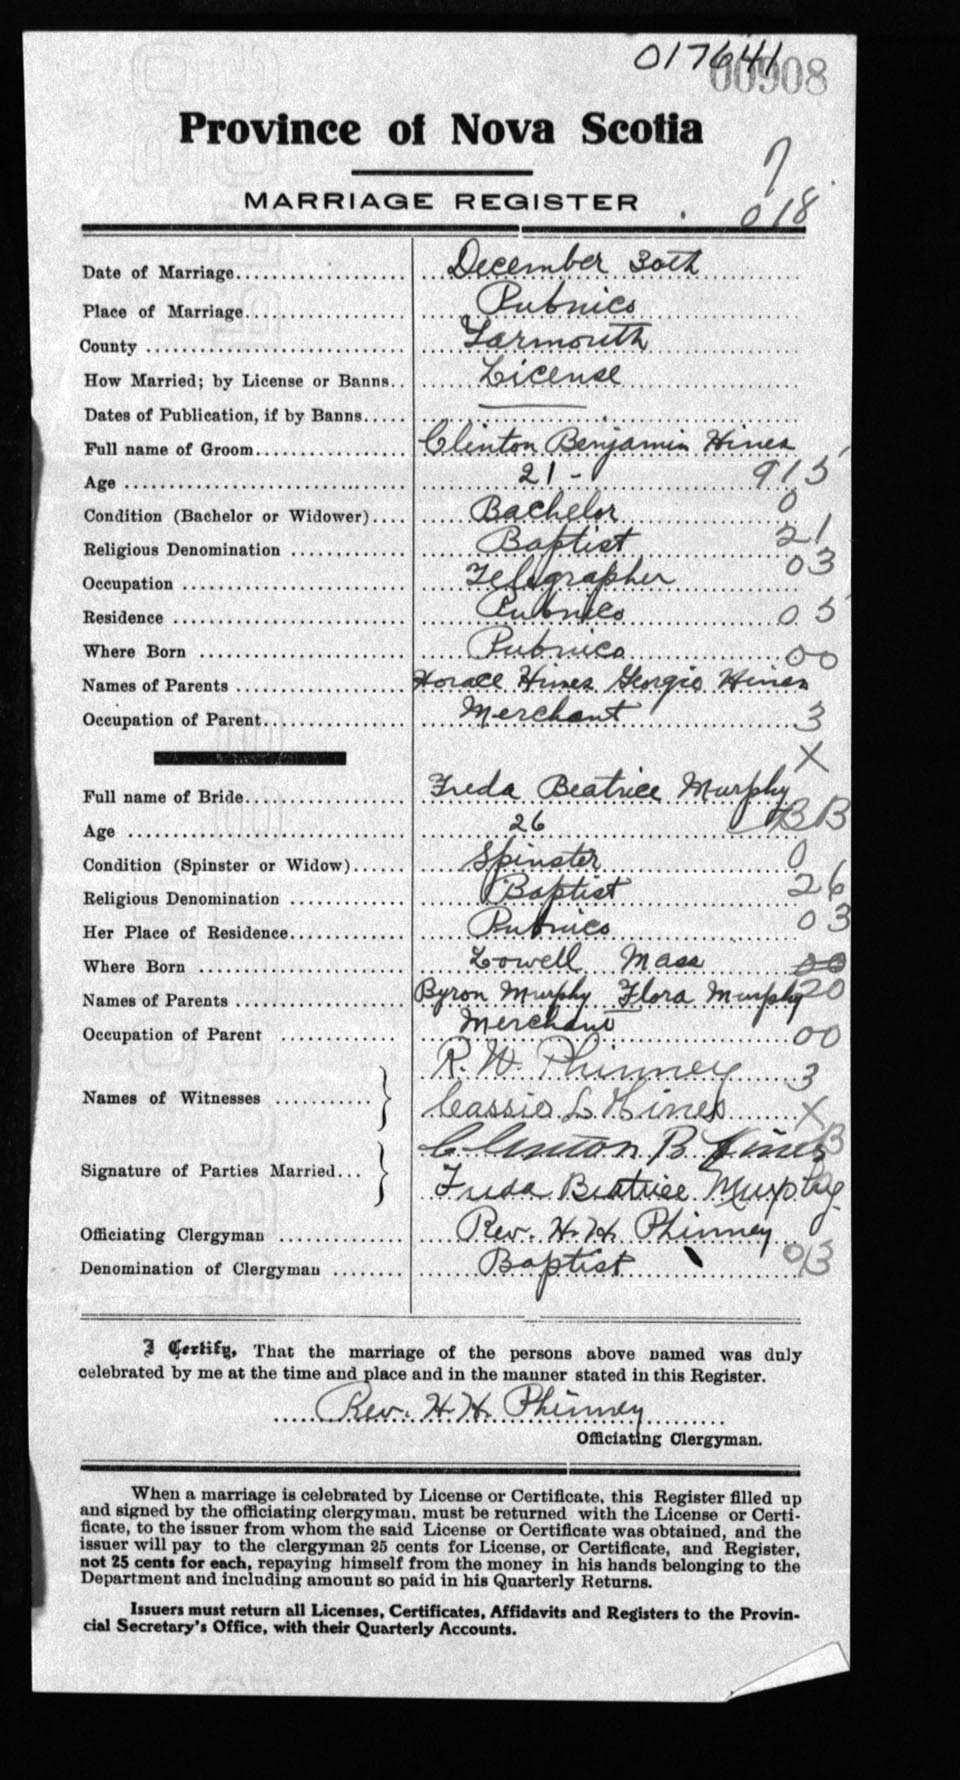 017641
00908
Province of Nova Scotia
7
MARRIAGE REGISTER
018
Date of Marriage December 30th
Place of Marriage Pubnico
County Yarmouth
How Married; by License or Banns License
Dates of Publication, if by Banns
Full name of Groom Clinton Benjamin Hines
Age 21 - 915
Condition (Bachelor or Widower) Bachelor 0
Religious Denomination Baptist 21
Occupation Telegrapher 03
Residence Pubnico 05
Where Born Pubnico 00
Names of Parents Horace Hines Georgie Hines
Occupation of Parent Merchant 3
X
Full name of Bride Freda Beatrice Murphy
Age 26 BB
Condition (Spinster or Widow) Spinster 0
Religious Denomination Baptist 26
Her Place of Residence Pubnico 03
Where Born Lowell Mass
Names of Parents Byron Murphy Flora Murphy 20
Occupation of Parent Merchant 00
Names of Witnesses R. W. Phinney 3
Cassie L Hines X
Signature of Parties Married Clinton B Hines B
Freda Beatrice Murphy
Officiating Clergyman Rev. H. H. Phinney
Denomination of Clergyman Baptist 03
I Certify, That the marriage of the persons above named was duly
celebrated by me at the time and place and in the manner stated in this Register.
Rev. H. H. Phinney
Officiating Clergyman.
When a marriage is celebrated by License or Certificate, this Register filled up
and signed by the officiating clergyman, must be returned with the License or Certi-
ficate, to the issuer from whom the said License or Certificate was obtained, and the
issuer will pay to the clergyman 25 cents for License, or Certificate, and Register,
not 25 cents for each, repaying himself from the money in his hands belonging to the
Department and including amount so paid in his Quarterly Returns.
Issuers must return all Licenses, Certificates, Affidavits and Registers to the Provin-
cial Secretary's Office, with their Quarterly Accounts.